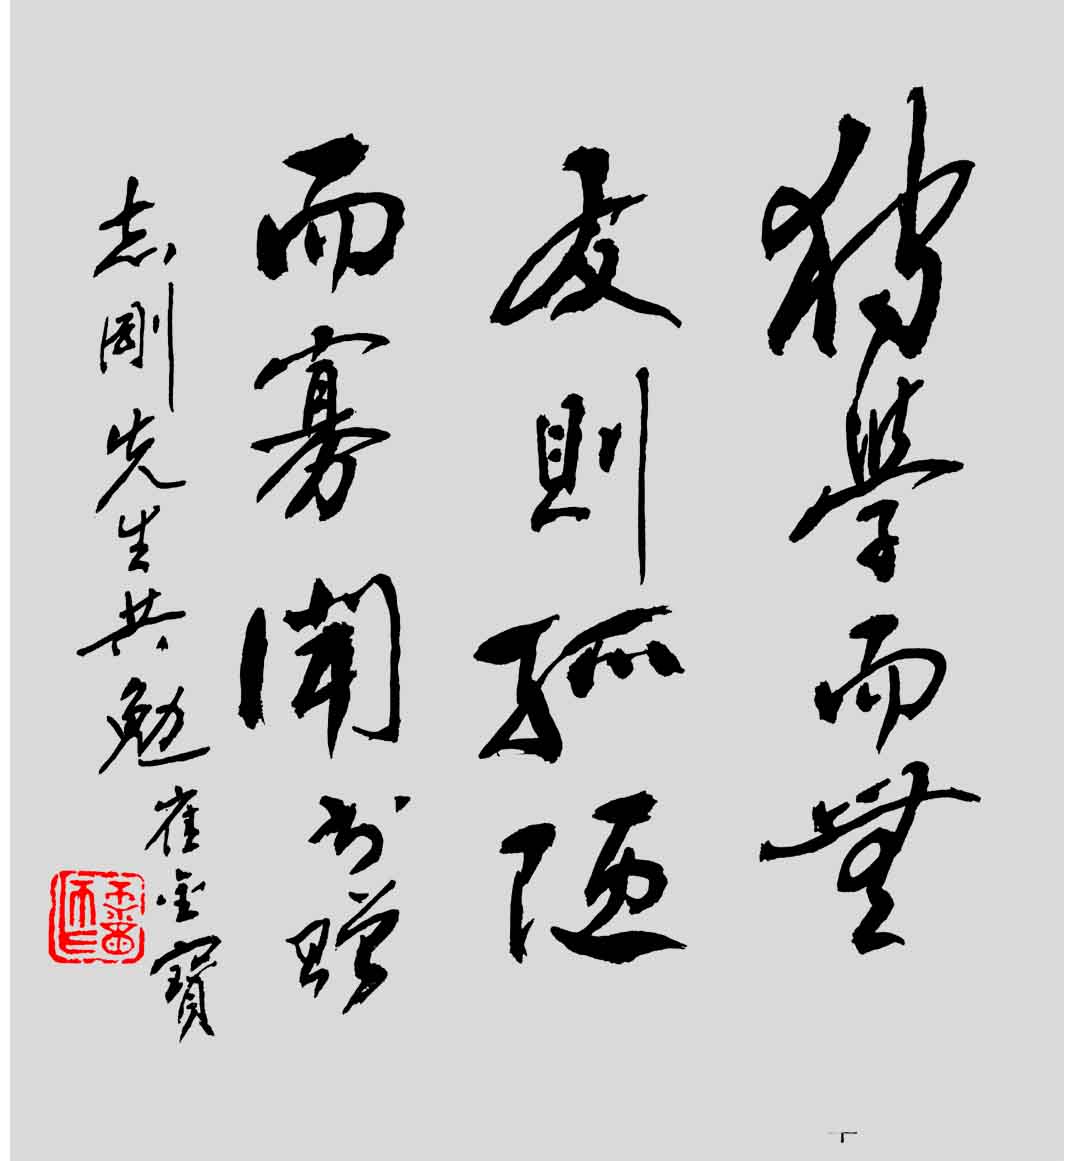 獨學而無
友則孤陋
而寡聞 书贈
志剛先生共勉
崔金寶